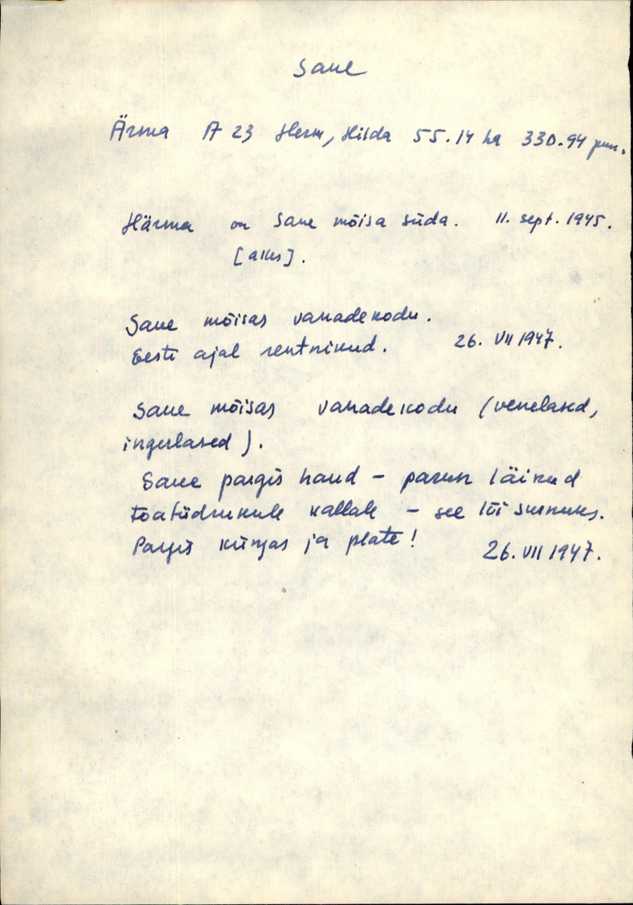 Saue
Ärma A 23 Herm, Hilda 55.14 ha 330.94 pun.
Härma on Saue mõisa süda. 11. sept. 1945.
[alus].
Saue mõisas vanadekodu.
Eesti ajal rentnikud. 26. VII 1947.
Saue mõisas vanadekodu (venelased,
ingerlased).
Saue pargis haud – parun läinud
toatüdrukule kallale – see lõi surnuks.
Pargis küngas ja plate! 26. VII 1947.